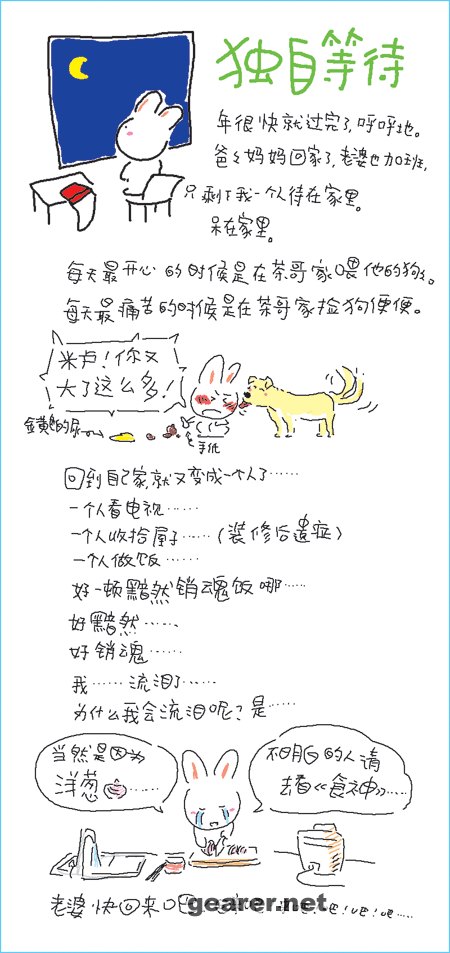 独自等待
年很快就过完了,呼呼地。
爸爸妈妈回家了,老婆也加班,
只剩下我一个人待在家里。
呆在家里。
每天最开心的时候是在茶哥家喂他的狗。
每天最痛苦的时候是在茶哥家捡狗便便。
米卢!你又
大了这么多!
黄色的尿
手纸
回到自己家,就又变成一个人了……
一个人看电视……
一个人收拾屋子……(装修后遗症)
一个人做饭……
好一顿黯然销魂饭哪……
好黯然……
好销魂……
我……流泪了……
为什么我会流泪呢?是……
当然是因为
洋葱……
不明白的人请
去看《食神》……
老婆快回来吧
gearer.net
吧!吧!吧……